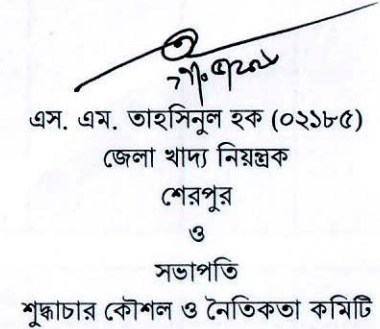 এস. এম. তাহসিনুল হক (০২১৮৫)
জেলা খাদ্য নিয়ন্ত্রক
শেরপুর
ও
সভাপতি
শুদ্ধাচার কৌশল ও নৈতিকতা কমিটি